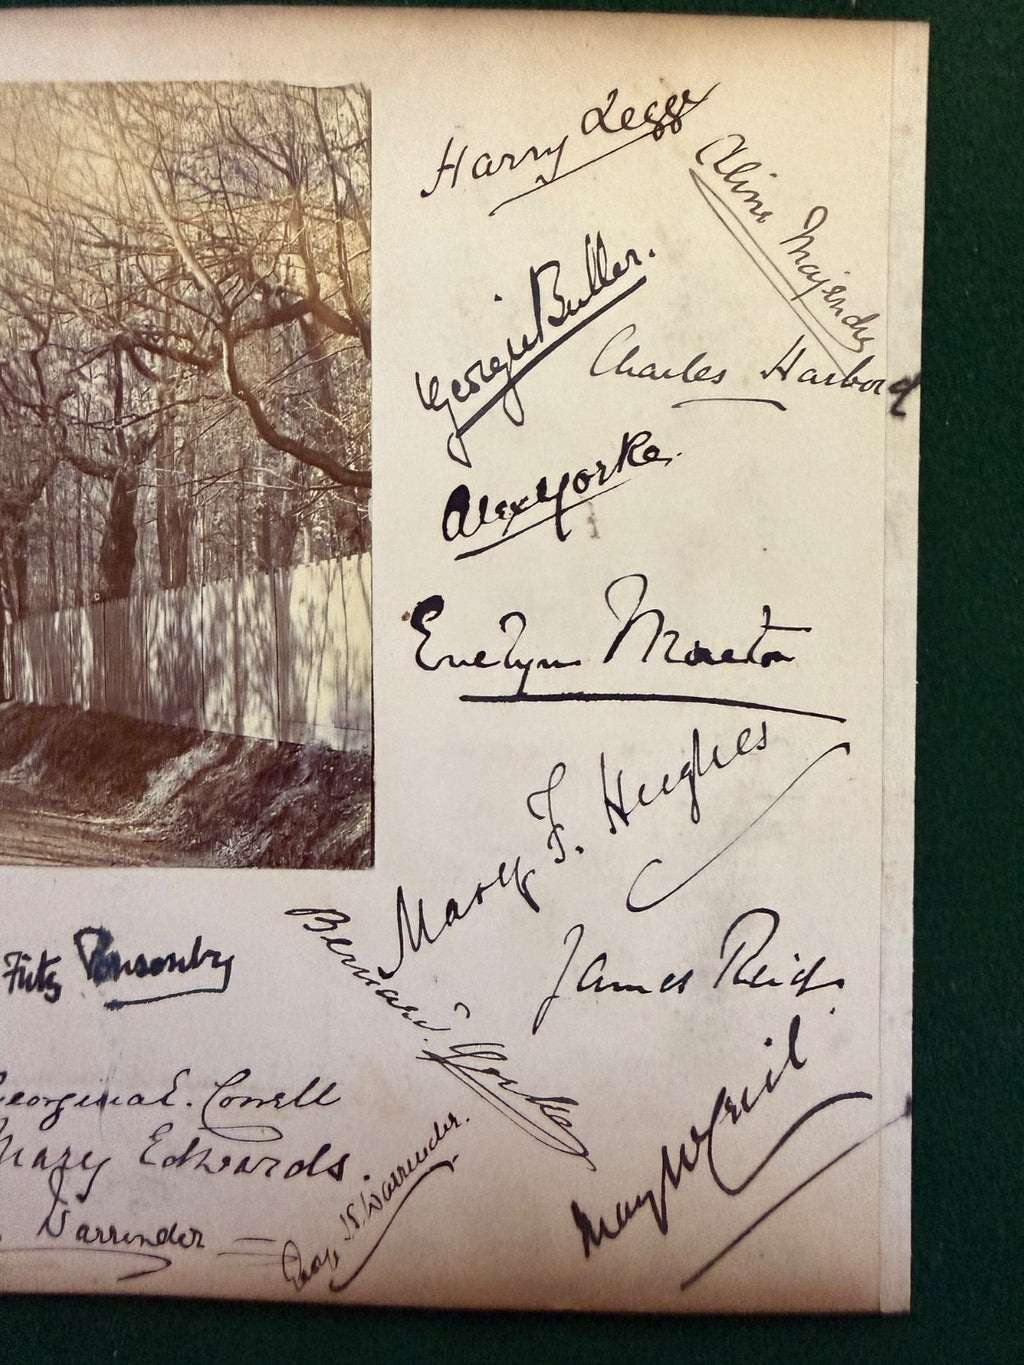 Harry Legge
Aline Majendie
Georgie Buller.
Charles Harbord
Alex Yorke.
Evelyn Moreton
Mary F. Hughes
Fritz Ponsonby
Bernard Yorke
James Reid.
Georgina E. Cowell
Mary Edwards
Warrender
Geo. Warrender.
Mary